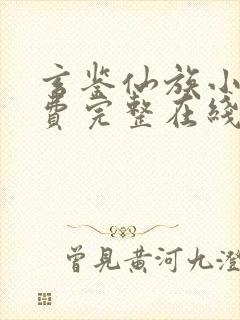 玄鉴仙族小
费完整在线
曾見黄河九澄